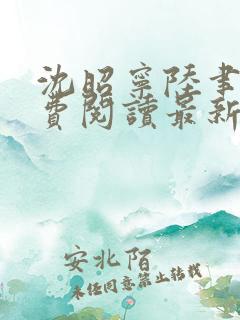 沈昭寧陸書
費閱讀最新
安北陌
未经同意禁止转载